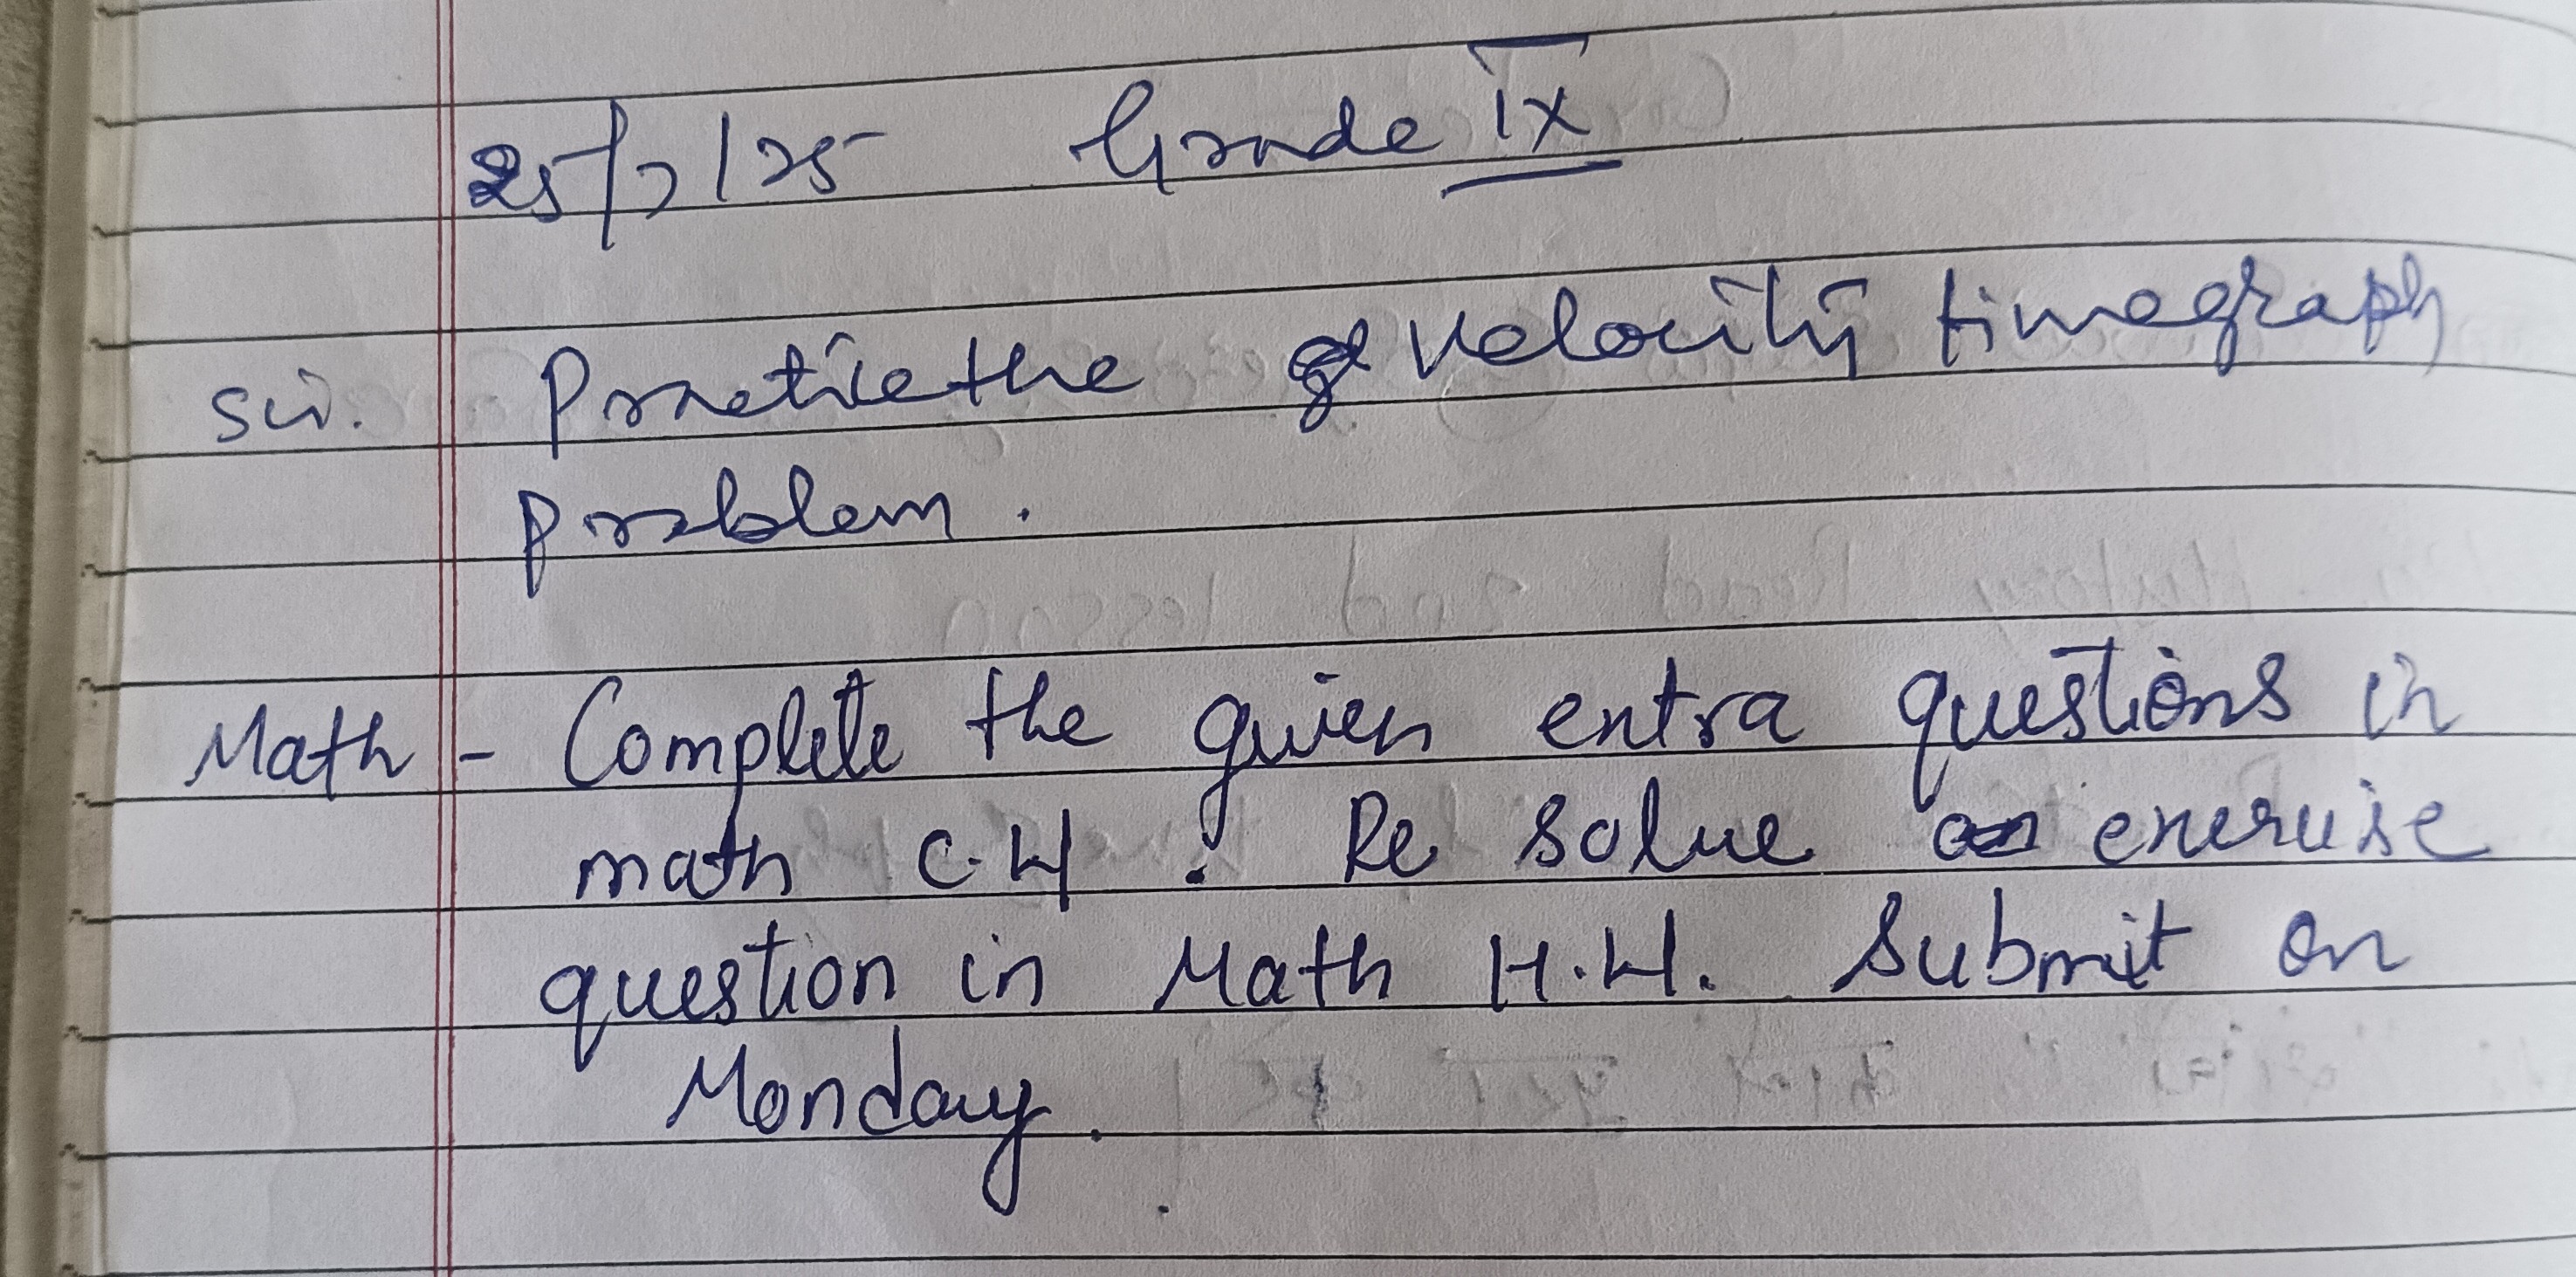 25/7/25 Grade IX
Sci. Practice the velocity timegraph
problem.
Math - Complete the given extra questions in
math C.W. Re solve exercise
question in Math H.W. Submit on
Monday.